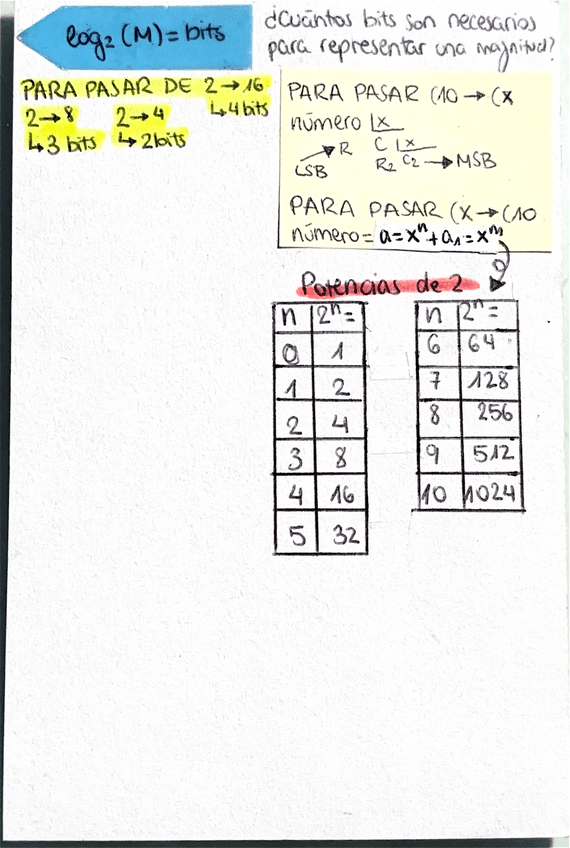 log₂ (M) = bits
¿Cuántos bits son necesarios
para representar una magnitud?
PARA PASAR DE 2 → 16
↳ 4 bits
2 → 8
↳ 3 bits
2 → 4
↳ 2 bits
PARA PASAR (10 → (X
número |x
LSB → R C |x
R₂ C₂ → MSB
PARA PASAR (X → (10
número = a = xⁿ + a₁ = xᵐ
Potencias de 2
n 2ⁿ =
0 1
1 2
2 4
3 8
4 16
5 32
n 2ⁿ =
6 64
7 128
8 256
9 512
10 1024